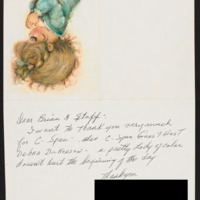 Dear Brian & Staff -
I want to thank you very much
for C. Span - also C. Span Guest Host
Debra
- a pretty lady of color
doesn't hurt the beginning of the day
Thank you